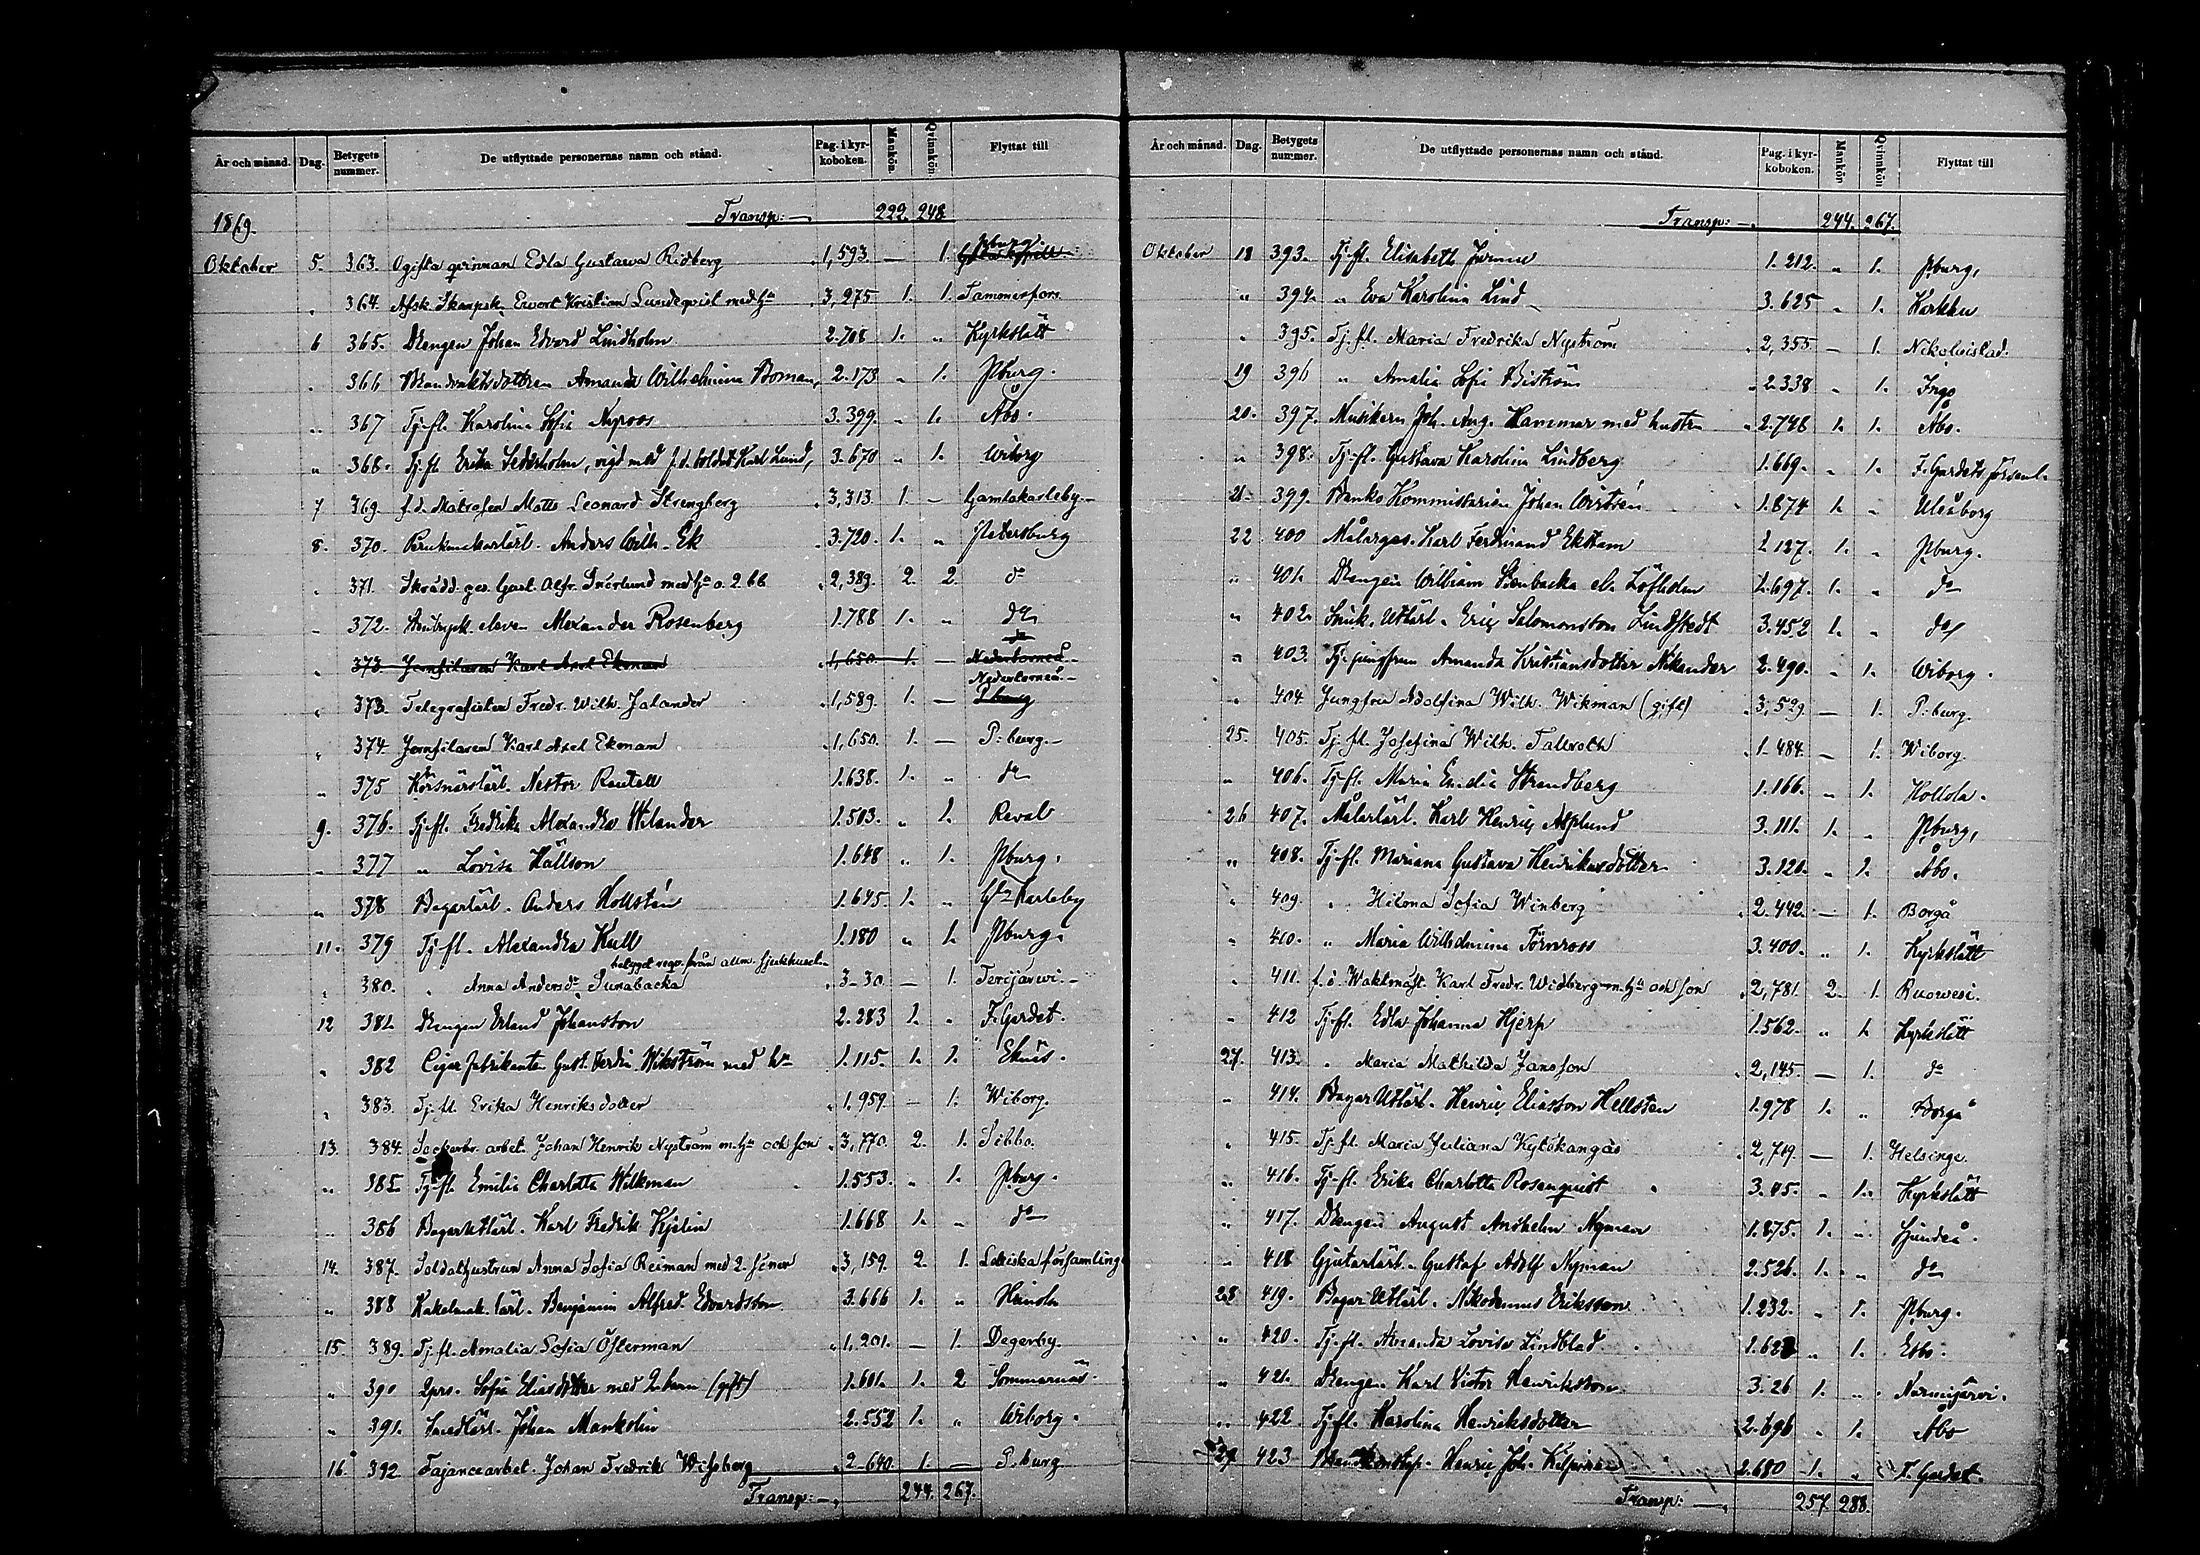 År och månad. Dag. Betygets nummer. De utflyttade personernas namn och stånd. Pag. i kyrkoboken. Mankön. Qvinnkön Flyttat till
1869. Transp: 222. 248
Oktober 5. 363. Ogifta qvinnan Edla Gustawa Ridberg 1,593. — 1. Pburg
„ 364. Afsk. Skarpsk. Ewert Kristian Lundeqvist med hu 3,275 1. 1. Tammerfors
6 365. Drengen Johan Edvard Lindholm 2.708 1. „ Kyrkslätt
„ 366 Amanda Wilhelmina Boman, 2.173 „ 1. Pburg.
„ 367 Tj.fl. Karolina Sofia Nyroos 3.399. „ 1. Åbo.
„ 368. Tj.fl. Erika Sederholm, vigd med f.d. soldat Karl Lund, 3.670 „ 1. Wiborg
7 369. f.d. Matrosen Matts Leonard Strengberg 3,313 1. — Gamlakarleby
8. 370. Perukmakarlärl. Anders Wilh. Ek 3.720. 1. „ Petersburg
„ 371. Skrädd. ges. Gust. Alfr. med hu o. 2 bb 2,389. 2. 2. do
„ 372. eleven Alexander Rosenberg 1.788 1. „ do
„ 373 Jernfilaren Karl Axel Ekman 1,650. 1. — Nedertorneå
„ 373. Telegrafisten Fredr. Wilh. Jalander 1,589. 1. — Nedertorneå P:burg
„ 374. Jernfilaren Karl Axel Ekman 1,650. 1. — P:burg.
„ 375 Körsnärslärl. Nestor Rautell 1.638. 1. „ do
9. 376. Tj.fl. Fredrika Alexandra Wilander 1.503. „ 1. Reval
„ 377 „ Lovisa Hällson 1.648 „ 1. Pburg.
„ 378 Bagarlärl. Anders Hollstén 1.645. 1. „ Gla Karleby
11. 379 Tj.fl. Alexandra Kull 1.180 „ 1. Pburg.
betyget reqv. från allm. sjukhuset
„ 380. „ Anna Andersdr Sunabacka 3-30. — 1. Terijärwi.
12 381. Drengen Erland Johansson 2.283 1. „ F. Gardet.
„ 382 Cigarfabrikanten Gust. Ferdin. Wikström med hu 1.115. 1. 1. Eknäs.
„ 383. Tj.fl. Erika Henriksdotter 1.959. — 1. Wiborg.
13. 384. Sockerbr. arbet. Johan Henrik Nyström m. hu och son 3,770. 2. 1. Sibbo.
„ 385. Tj.fl. Emilia Charlotta Wilkman 1.553. „ 1. Pburg.
„ 386 Bagarutlärl. Karl Fredrik Kjelin 1.668 1. „ do
14. 387. Soldathustrun Anna Sofia Reiman med 2. söner 3,159. 2. 1. församling
„ 388 Kakelmak. lärl. Benjamin Alfred Edvardsson 3.666 1. „ Heinola
15. 389. Tj.fl. Amalia Sofia Österman 1,201. — 1. Degerby.
„ 390 Sofia Eliasdotter med 2 barn (gift) 1.601. 1. 2 Sommarnäs.
„ 391. Smedlärl. Johan Mankolin 2.552 1. „ Wiborg.
16. 392 Fajancearbet. Johan Fredrik Wissberg 2-640. 1. — P.burg
Transp: 244. 267.
År och månad. Dag. Betygets nummer. De utflyttade personernas namn och stånd. Pag. i kyrkoboken. Mankön Qvinnkön Flyttat till
Transp: 244. 267.
Oktober 18 393. Tj.fl. Elisabeth 1.212. „ 1. Pburg.
„ 394. „ Eva Karolina Lind 3.625 „ 1. Karkku
„ 395. Tj.fl. Maria Fredrika Nyström 2,355 — 1. Nikolaistad.
19 396 „ Amalia Sofia Biström 2.338 „ 1. Ingå
20. 397. Musikern Joh. Aug. Hammar med hustru 2.748 1. 1. Åbo.
„ 398. Tj.fl. Gustava Karolina Lindberg 1.669. „ 1. F. Gardets församl.
21. 399. Banko Kommissarien Johan 1.874 1. „ Uleåborg
22 400 Målarges. Karl Ferdinand Ekstam 2.127. 1. „ Pburg.
„ 401. Drengen William Stenbacka el. Löfholm 2.697. 1. „ do
„ 402. Snick. Utlärl. Eric Salomonsson Lindstedt 3.452 1. „ do
„ 403. Tj. jungfrun Amanda Kristiansdotter Nikander 2.490. „ 1. Wiborg.
„ 404 Jungfru Adolfina Wilh. Wikman (gift) 3,529. — 1. P:burg.
25. 405. Tj.fl. Josefina Wilh. Tallroth 1.484. — 1. Wiborg.
„ 406. Tj.fl. Maria Emelia Strandberg 1.166. „ 1. Hollola.
26 407. Målarlärl. Karl Henric Asplund 3.111. 1. „ Pburg.
„ 408. Tj.fl. Mariana Gustava Henriksdotter 3.120. „ 1. Åbo.
„ 409. „ Hilona Sofia Winberg 2.442. — 1. Borgå
„ 410. „ Maria Wilhelmina Törnroos 3.400. „ 1. Kyrkslätt
„ 411. f.d. Waktmäst. Karl Fredr. Widberg m. hu och son 2,781. 2. 1. Ruowesi.
„ 412 Tj.fl. Edla Johanna Hjerp 1.562. „ 1. Kyrkslätt
27. 413. „ Maria Mathilda Jansson 2,145. — 1. do
„ 414. Bagar Utlärl. Henric Eliasson Hellsten 1.978 1. „ Borgå
„ 415. Tj.fl. Maria Juliana Kytökangas 2,719. — 1. Helsinge.
„ 416. Tj.fl. Erika Charlotta Rosenqvist 3.45. „ 1. Kyrkslätt
„ 417. Drengen August Anshelm Nyman 1.875. 1. „ Sjundeå.
„ 418 Gjutarlärl. Gustaf Adolf Nyman 2.526. 1. „ do
28 419. Bagar Utlärl. Nikodemus Eriksson 1.232. „ 1. Pburg.
„ 420. Tj.fl. Amanda Lovisa Lindblad 1.628 „ 1. Esbo.
„ 421. Drengen Karl Victor Henriksson 3.26 1. „ Nurmijärvi.
„ 422. Tj.fl. Karolina Henriksdotter 2.696 „ 1. Åbo
29 423 Henric Joh. 2.680 1. „ F. Gardet.
Transp: 257. 288.